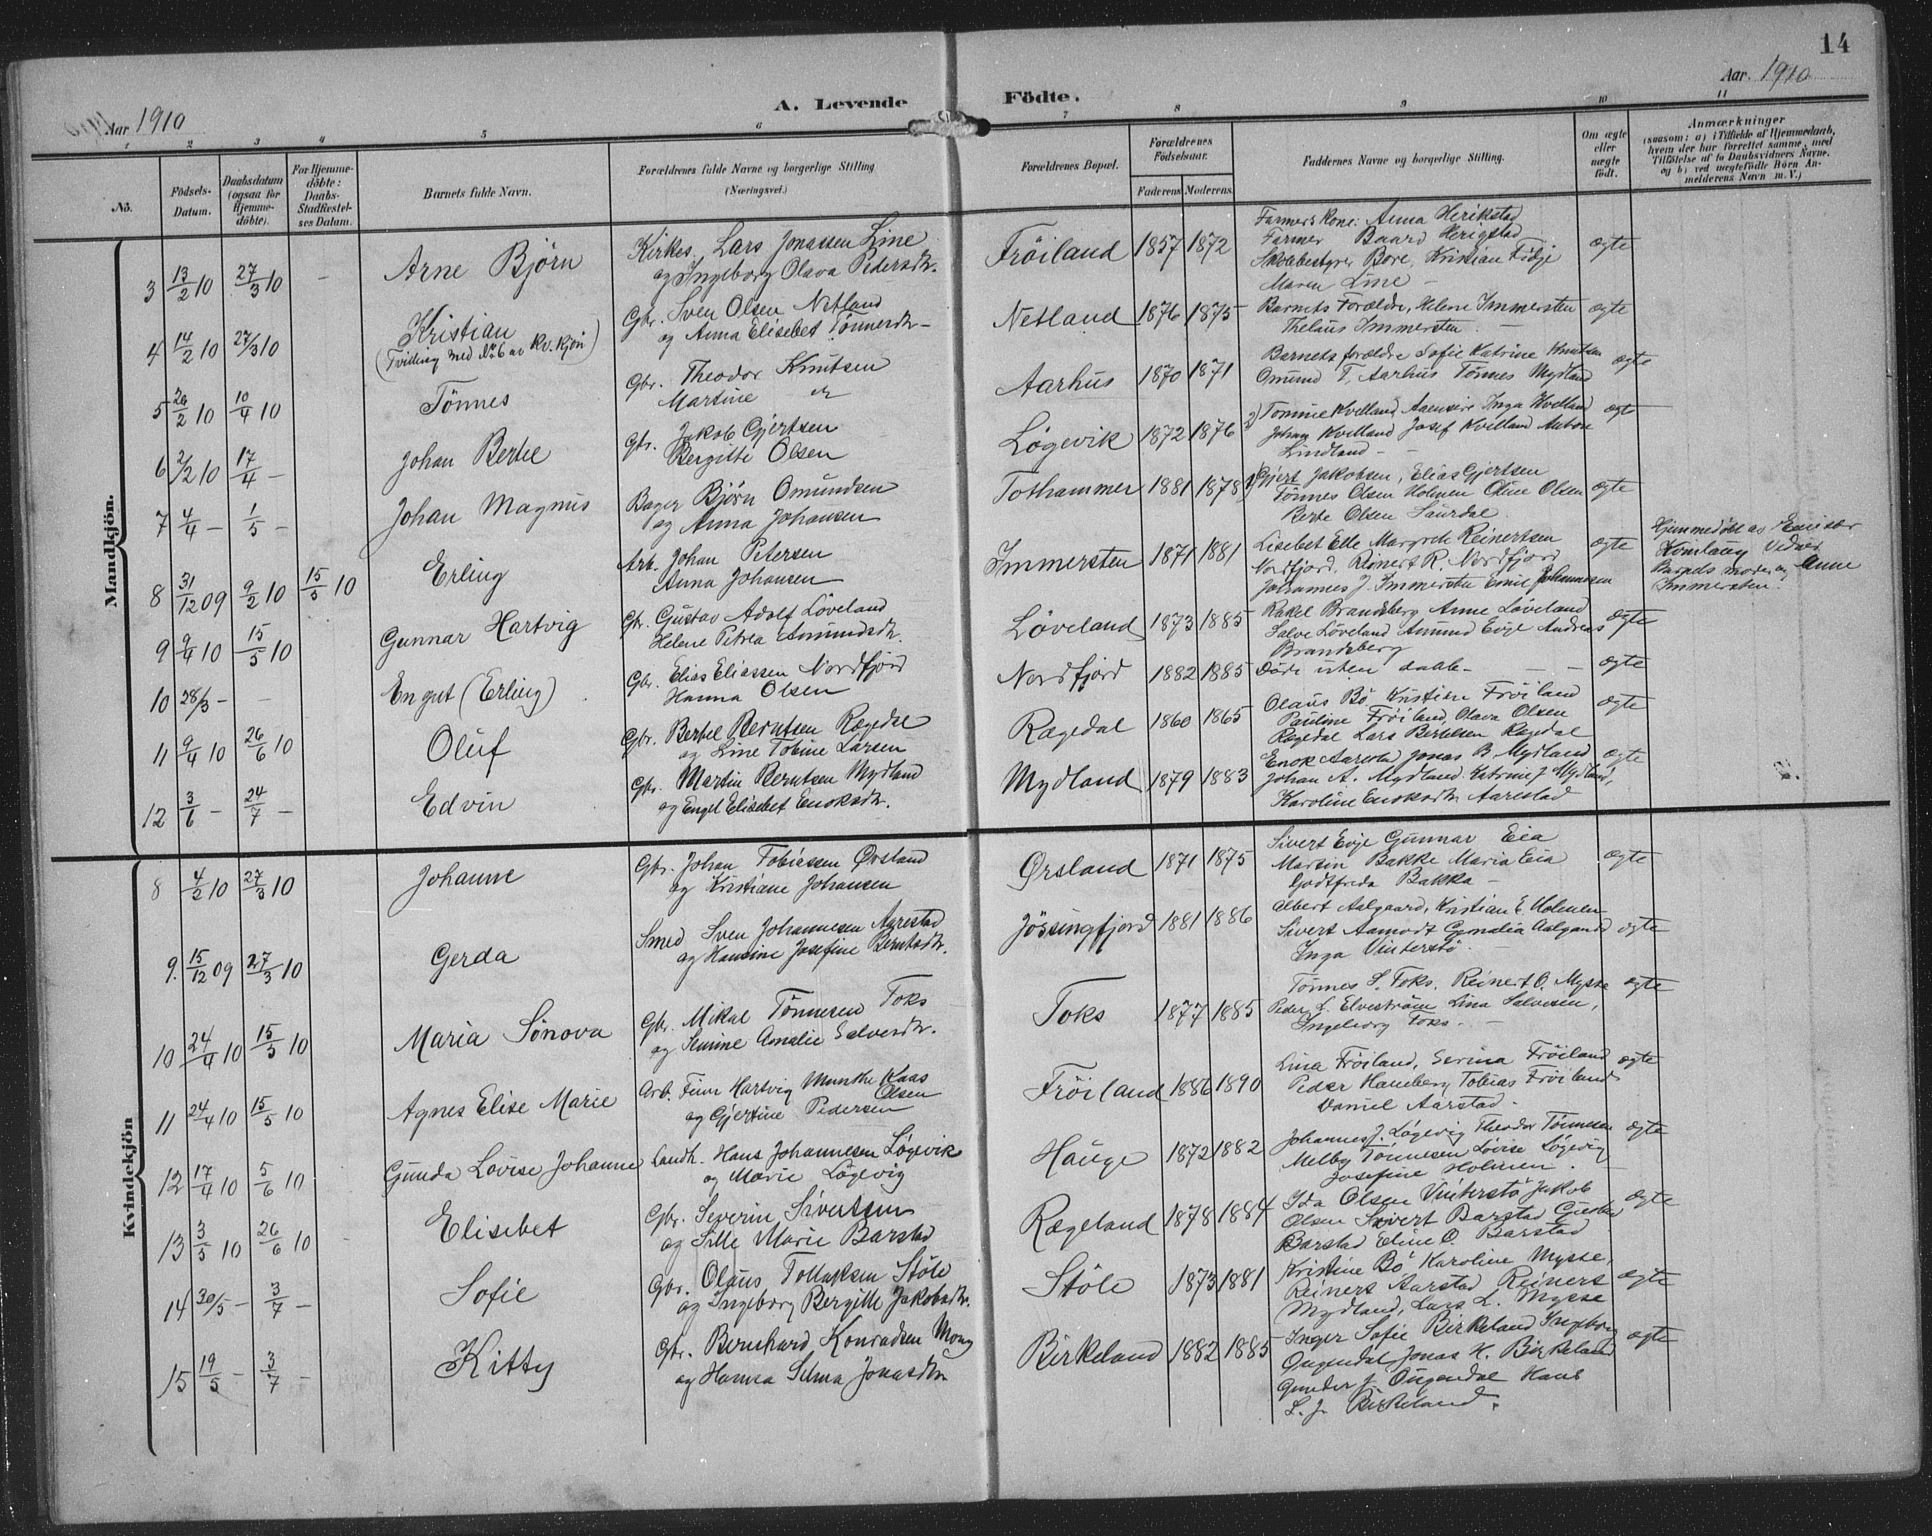 14
Aar 1910
A. Levende Födte.
Aar. 1910
1 2 3 4 5 6 7 8 9 10 11
No.
Födsels-Datum.
Daabsdatum (ogsaa for Hjemme-döbte).
For Hjemme-döbte: Daabs-Stadfæstel-ses Datum.
Barnets fulde Navn.
Forældrenes fulde Navne og borgerlige Stilling (Næringsvei.)
Forældrenes Bopæl.
Forældrenes Födselsaar.
Faderens Moderens
Faddernes Navne og borgerlige Stilling.
Om ægte eller uægte födt.
Anmærkninger
(saasom: a) i Tilfælde af Hjemmedaab,
hvem der har forrettet samme, med
Tilföielse af to Daabsvidners Navne.
og b) ved uægtefödte Börn An-
melderens Navn m. V.)
Mandkjön.
3 13/2 10 27/3 10 – Arne Björn
Kirkes. Lars Jonassen Line
og Ingeborg Olava Pedersdtr.
Fröiland 1857 1872
Farmers Kone: Anna Herikstad
Farmer Baard Herigstad
Skolebestyrer Bore, Kristian Fidje
Maren Line –
ægte
4 14/2 10 27/3 10 Kristian
(Tvilling med No 6 av Kv. kjön)
Gbr. Sven Olsen Netland
og Anna Elisebet Tönnesdtr –
Netland 1876 1875
Barnets Forældre, Helene Immersten
Thelaus Immersten. –
ægte
5 26/2 10 10/4 10 Tönnes
Gbr. Theodor Knutsen
Martine
Aarhus 1870 1871
Barnets forældre Sofie Katrine Knutsen
Omund T. Aarhus Tönnes Mydland
ægte
6 2/2 10 17/4 – Johan Bertel
Gbr. Jakob Gjertsen
Bergitte Olsen
Lögevik 1872 1876
2) Tomine Kvelland Inga Kvelland
Johan Kvelland Josef Kvelland Anton
Lindland –
ægte
7 4/4 – 1/5 – Johan Magnus
Bager Björn Omundsen
og Anna Johansen
Tothammer 1881 1878
1) Gjert Jakobsen, Elias Gjertsen
Tönnes Olsen Holmen Oline Olsen
Berte Olsen Saurdal.
ægte
8 31/12 09 9/2 10 15/5 10 Erling
Arb. Johan Petersen
Anna Johansen
Immersten 1871 1881
Lisebet Elle Margrete Reinertsen
Nordfjord, Reinert R. Nordfjord
Johannes J. Immersten Emil Johannesen
ægte
Hjemmedöbt av
Vidner
Barnets moder og Anne
Immersten.
9 9/4 10 15/5 10 Gunnar Hartvig
Gbr. Gustav Adolf Löveland
Helene Petrea Amundsdtr.
Löveland 1873 1885
Rakel Brandsberg Anne Löveland
Salve Löveland Amund Eije Andreas
Brandsberg
ægte
10 28/3 – – En gut (Erling)
Gbr. Elias Eliassen Nordfjord
Hanna Olsen
Nordfjord 1882 1885
Döde uten daab – – –
ægte
11 9/4 10 26/6 10 Oluf
Gbr. Bertel Berntsen Rægdal
og Line Tobine Larsen
Rægedal 1860 1865
Olaus Bö Kristine Fröiland
Pauline Fröiland, Olava Olsen
Rægedal Lars Bertelsen Rægedal
ægte
12 3/6 – 24/7 – Edvin
Gbr. Martin Berntsen Mydland
og Engel Elisebet Enoksdtr.
Mydland 1879 1883
Enok Aarestad Jonas B. Mydland
Johan A. Mydland Katrine J Mydland,
Karoline Enoksdtr Aarestad
ægte
Kvindekjön
8 4/2 10 27/3 10 Johanne
Gbr. Johan Tobiassen Örsland
og Kristiane Johansen
Ørsland 1871 1875
Sivert Eije Gunnar Eia
Martin Bakke Maria Eia
Godtfreda Bakka –
ægte
9. 15/12 09 27/3 10 Gerda
Smed Sven Johannesen Aarestad
og Hansine Josefine Berntsdtr.
Jössingfjord 1881 1886
Albert Aalgaard, Kristian E. Holmen
Sivert Aamodt Cornelia Aalgaard
Inga Vinterstö –
ægte
10 24/4 10 15/5 10 Maria Sönova
Gbr. Mikal Tönnesen Toks
og Semine Amalie Salvesdtr.
Toks 1877 1885
Tönnes S. Toks. Reinert O. Mysse
Peder L. Elvestrøm Lina Salvesen,
Ingeborg Toks. –
ægte
11 24/4 10 15/5 10 Agnes Elise Marie
Arb. Finn Hartvig Munthe Kaas
Olsen
og Gjertine Pedersen
Fröiland 1886 1890
Lina Fröiland, Serina Fröiland
Peder Haneberg Tobias Fröiland
Daniel Aarstad.
ægte
12 17/4 10 5/6 10 Gunda Lovise Johanne
Landh. Hans Johannesen Lögevik
og Marie Lögevig
Hauge 1872 1882
Johannes J. Lögevig Theodor Tönnesen
Melby Tönnesen Lovise Lögevig
Josefine Holmen.
ægte
13 3/5 10 26/6 10 Elisebet
Gbr. Severin Sivertsen
og Sille Marie Barstad
Rægeland 1878 1884
Ida Olsen Vinterstö Jakob
Olsen Sivert Barstad Gustav
Barstad Eline O. Barstad
ægte
14 30/5 – 3/7 – Sofie
Gbr. Olaus Tollaksen Stöle
og Ingeborg Bergitte Jakobsdtr.
Stöle 1873 1881
Kristine Bö Karoline Mysse,
Reiners Aarstad Reiners
Mydland, Lars L. Mysse
ægte
15 19/5 – 3/7 – Kitty
Gbr. Bernhard Konradsen Mong
og Hansa Selma Jonasdtr
Birkeland 1882 1885
Inger Sofie Birkeland Ingeborg
Ougendal Jonas H. Birkeland
Gunder J. Ougendal Hans
L. J. Birkeland.
ægte